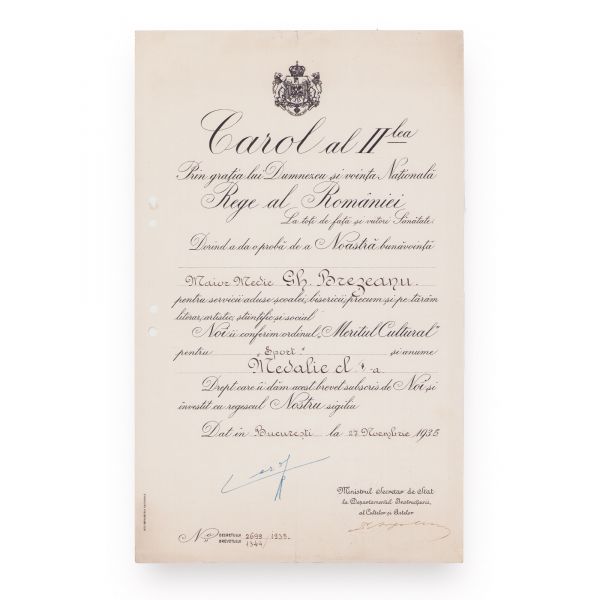 Carol al II-lea
Prin graţia lui Dumnezeu şi voinţa Naţională
Rege al României
La toţi de faţă şi viitori Sănătate
Dorind a da o probă de a Noastră bunăvoinţă
Maior Medic Gh. Brezeanu
pentru servicii aduse şcoalei, bisericii, precum şi pe tărâm
literar, artistic, stiinţific şi social
Noi îi conferim ordinul „Meritul Cultural"
pentru „Sport" şi anume
Medalie cl. I-a
Drept care îi dăm acest brevet subscris de Noi şi
investit cu regescul Nostru sigiliu
Dat în Bucureşti la 27 Noembrie 1935
Carol
Ministrul Secretar de Stat
la Departamentul Instrucţiunii,
al Cultelor şi Artelor
No. DECRETULUI 2698/1935.
BREVETULUI 1344